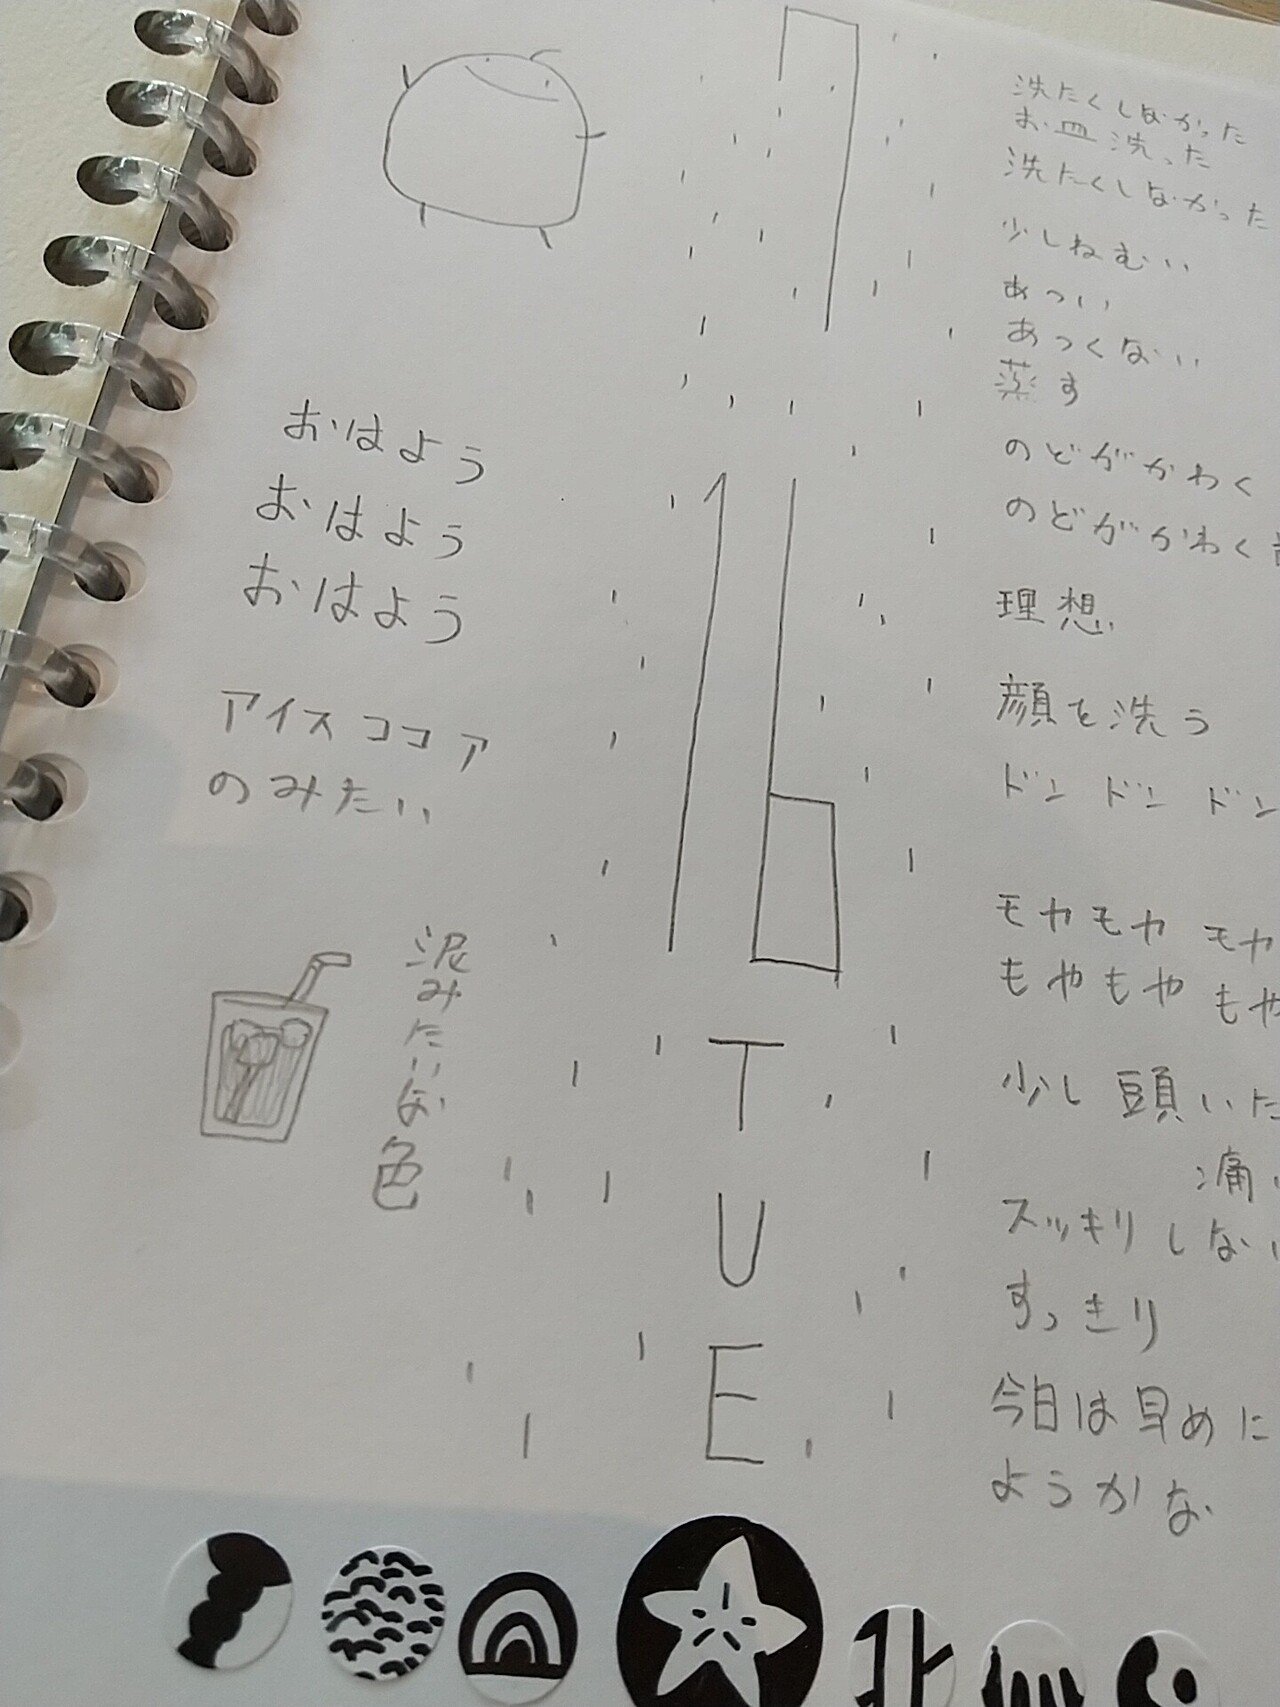 おはよう
おはよう
おはよう
アイスココア
のみたい
泥みたいな色
TUE
洗たくしなかった
お皿洗った
洗たくしなかった
少しねむい
あつい
あつくない
蒸す
のどがかわく
のどがかわく
理想
顔を洗う
ドン ドン ドン
モヤモヤ モヤ
もやもや もや
少し頭いた
痛
スッキリしない
すっきり
今日は早めに
ようかな